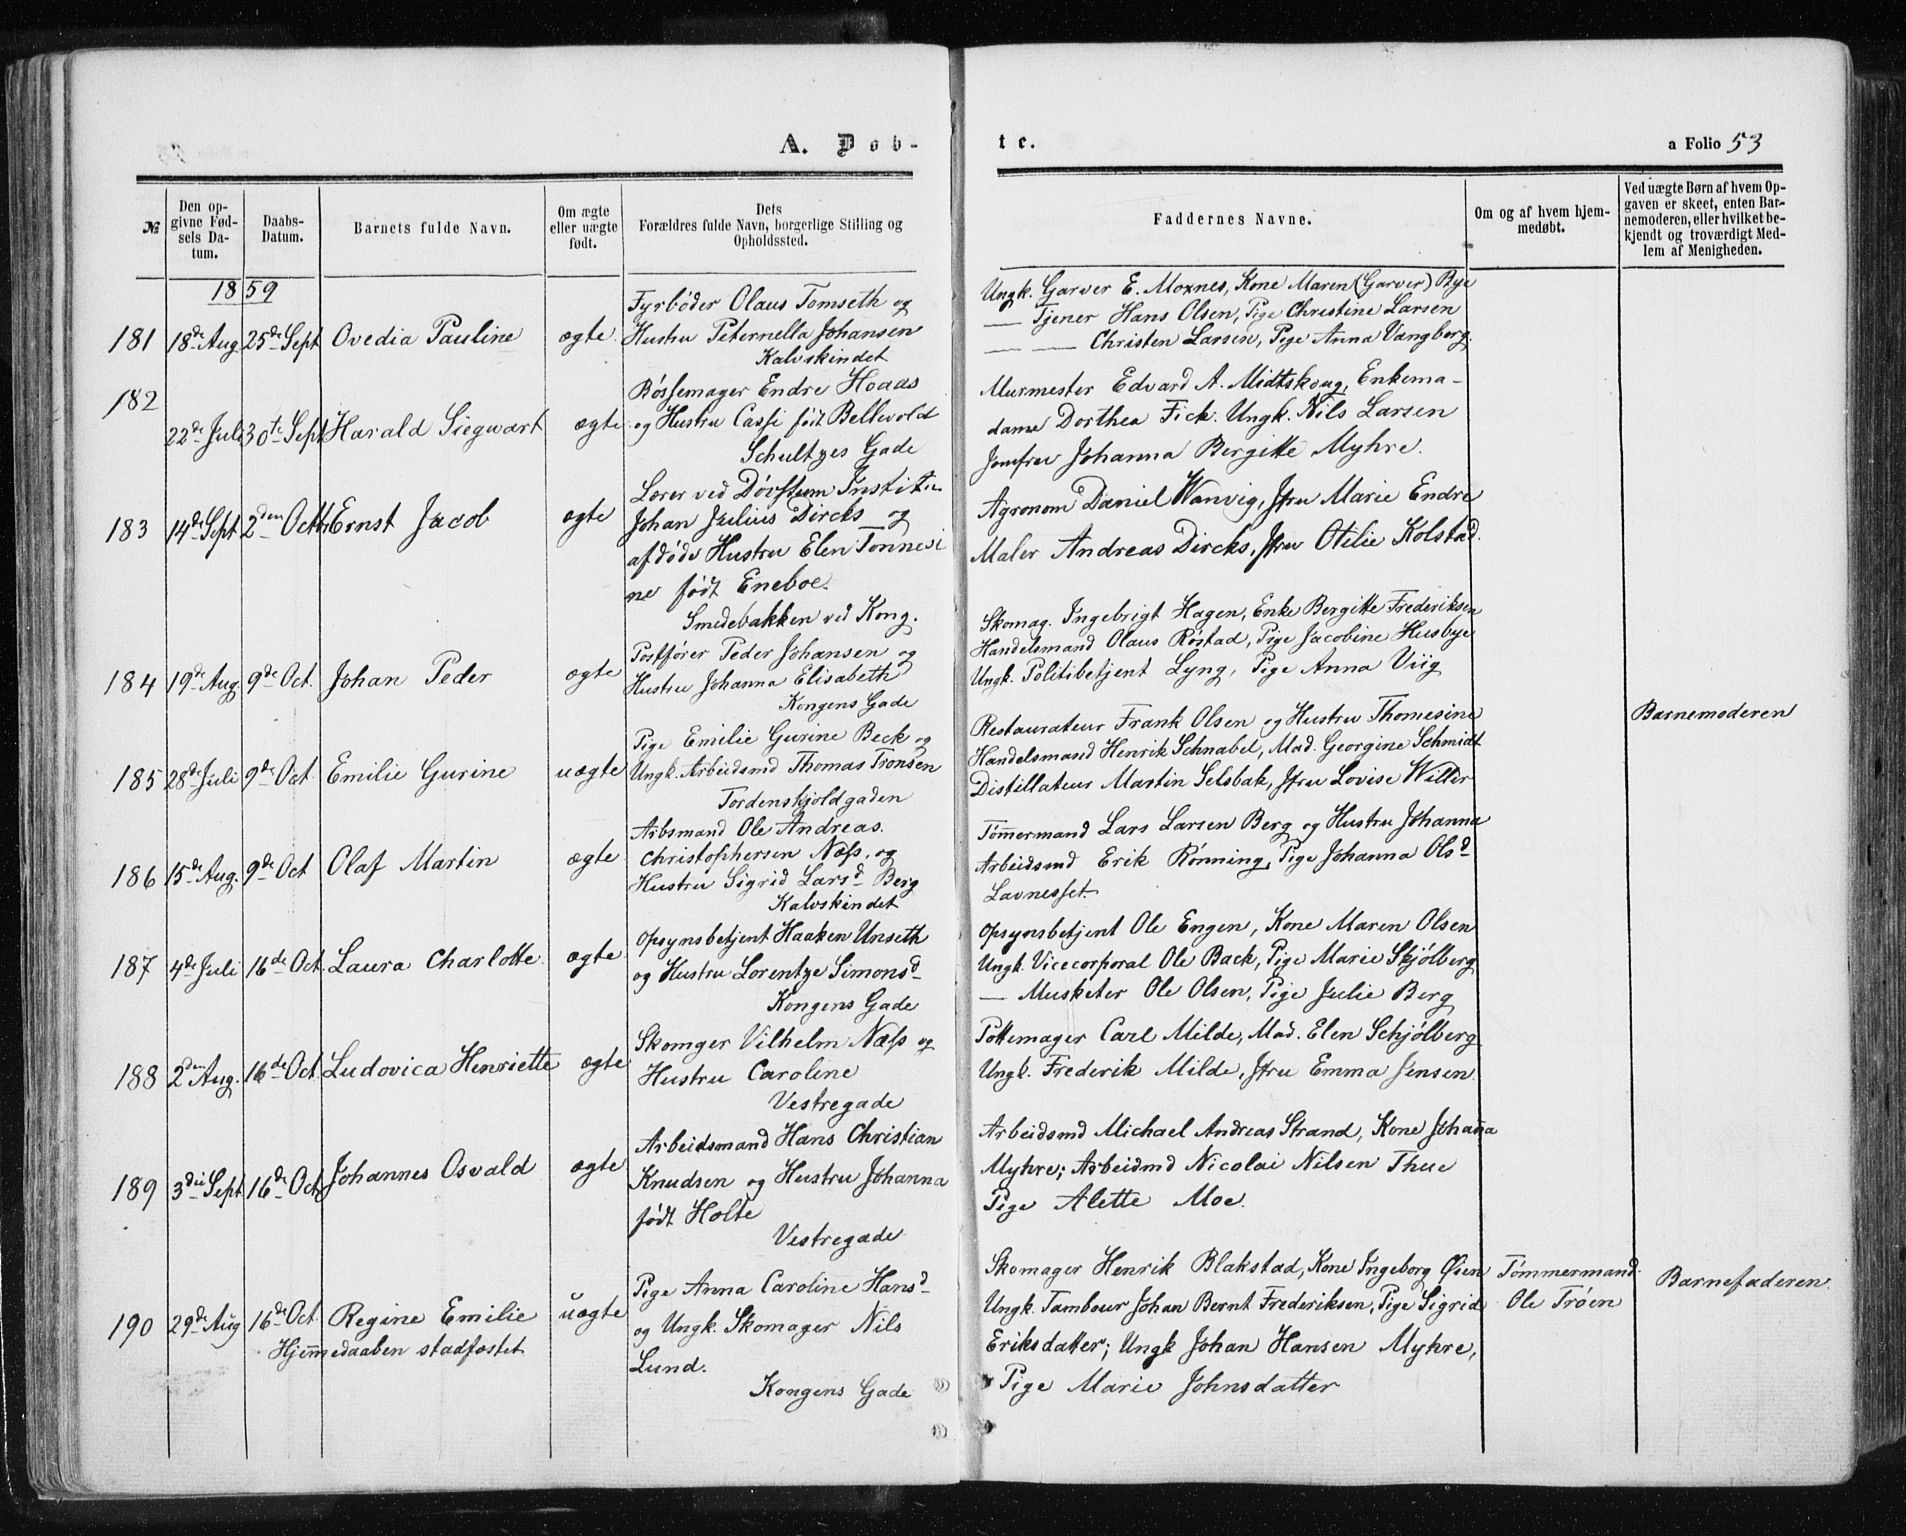 A. Døb-
te.
a Folio 53
№
Den opgivne Fødsels Datum.
Daabs-Datum.
Barnets fulde Navn.
Om ægte eller uægte født.
Dets Forældres fulde Navn, borgerlige Stilling og Opholdssted.
Faddernes Navne.
Om og af hvem hjemmedøbt.
Ved uægte Børn af hvem Opgaven er skeet, enten Barnemoderen, eller hvilket bekjendt og troværdigt Medlem af Menigheden.
1859
181 18de Aug 25de Sept Ovedia Pauline ægte
Fyrbøder Olaus Tomseth og
Hustru Peternella Johansen
Kalvskindet
Ungk. Garver E. Moxnes, Kone Maren (Garver) Bye
— Tjener Hans Olsen, Pige Christine Larsen
— — Christen Larsen, Pige Anna Vangberg.
182 22de Juli 30te Sept Harald Siegwart ægte
Bøssemager Endre Hoaas
og Hustru Cassi født Bellevold
Schultzes Gade
Murmester Edvard A. Midtskoug, Enkema-
dame Dorthea Fick. Ungk. Nils Larsen
Jomfru Johanna Bergitte Myhre.
183 14de Sept 2den Octb Ernst Jacob ægte
Lærer ved Døvstum Institu
Johan Julius Dircks og
afdøde Hustru Elen Tonnevi
ne født Eneboe.
Smedebakken ved Kong.
Agronom Daniel Wanvig, Jfru Marie Endre
Maler Andreas Dircks, Jfru Otilie Kolstad.
184 19de Aug 9de Oct. Johan Peder ægte
Postfører Peder Johansen og
Hustru Johanna Elisabeth
Kongens Gade
Skomag. Ingebrigt Hagen, Enke Bergitte Frederiksen
Handelsmand Olaus Røstad, Pige Jacobine Husbye
Ungk. Politibetjent Lyng, Pige Anna Viig
185 28de Juli 9de Oct. Emilie Gurine uægte
Pige Emilie Gurine Beck og
Ungk. Arbeidsmd Thomas Tronsen
Tordenskjoldgaden
Restaurateur Frank Olsen og Hustru Thomesine
Handelsmand Henrik Schnabel, Mad. Georgine Schmidt
Distillateur Martin Selsbak, Jfru Lovise Willer
Barnemoderen
186 15de Aug. 9de Oct Olaf Martin ægte
Arbsmand Ole Andreas.
Christophersen Næss, og
Hustru Sigrid Larsd Berg
Kalvskindet
Tømmermand Lars Larsen Berg og Hustru Johanna
Arbeidsmd Erik Rønning, Pige Johanna Olsd
Lavnesset.
187 4de Juli 16de Oct. Laura Charlotte ægte
Opsynsbetjent Haaken Unseth
og Hustru Lorentze Simonsd
Kongens Gade
Opsynsbetjent Ole Engen, Kone Maren Olsen
Ungk. Vicecorporal Ole Back, Pige Marie Skjølberg
— Musketer Ole Olsen, Pige Julie Berg
188 2den Aug. 16de Oct. Ludovica Henriette ægte
Skomger Vilhelm Næss og
Hustru Caroline
Vestregade
Pottemager Carl Milde, Mad. Elen Schjølberg
Ungk. Frederik Milde, Jfru Emma Jensen
189 3die Sept 16de Oct Johannes Osvald ægte
Arbeidsmand Hans Christian
Knudsen og Hustru Johanna
født Holte
Vestregade
Arbeidsmd Michael Andreas Strand, Kone Johanna
Myhre; Arbeidmd Nicolai Nilsen Thue
Pige Alette Moe.
190 29de Aug 16de Oct. Regine Emilie uægte
Hjemmedaaben stadfæstet
Pige Anna Caroline Hansd
og Ungk. Skomager Nils
Lund.
Kongens Gade
Skomager Henrik Blakstad, Kone Ingeborg Øien
Ungk. Tambour Johan Bernt Frederiksen, Pige Sigrid
Eriksdatter; Ungk Johan Hansen Myhre,
Pige Marie Johnsdatter
Tømmermand
Ole Trøen
Barnefaderen